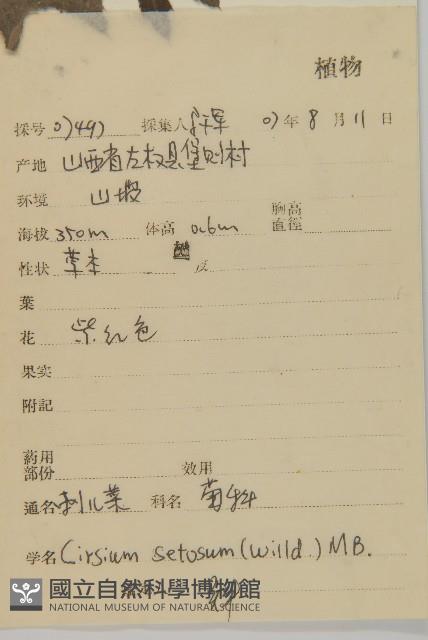 植物
採号 0749) 採集人 07年 8月 11日
产地 山西省左权县堡则村
环境 山坡
海拔 350m 体高 0.6m 胸高直徑
性状 草本 皮
葉
花 紫红色
果实
附記
葯用部份 效用
通名 刺儿菜 科名 菊科
学名 Cirsium setosum (Willd.) MB.
國立自然科學博物館
NATIONAL MUSEUM OF NATURAL SCIENCE